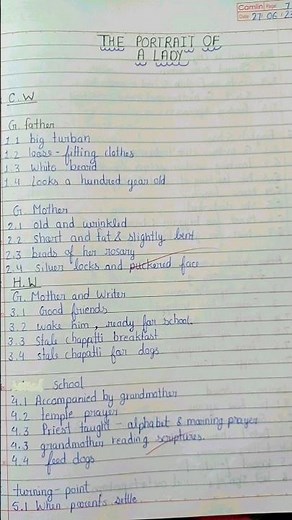 Camlin Page 7
Date 27 06
THE PORTRAIT OF
A LADY
C.W
G. father
1.1 big turban
1.2 loose-fitting clothes
1.3 White beard
1.4 Looks a hundred year old
G. Mother
2.1 old and wrinkled
2.2 short and fat & slightly bent
2.3 beads of her rosary
2.4 Silver locks and puckered face
H.W
G. Mother and Writer
3.1 Good friends
3.2 wake him, ready for school
3.3 Stale chappatti breakfast
3.4 stale chapatti for dogs
school
4.1 Accompanied by grandmother
4.2 temple prayer
4.3 Priest taught - alphabet & morning prayer
4.3 grandmother reading scriptures
4.4 feed dogs
turning-point
5.1 When parents settle